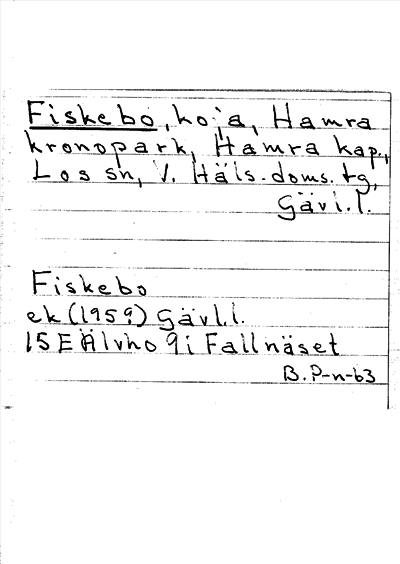 Fiskebo, koja, Hamra
kronopark, Hamra kap.,
Los sn, V. Häls. doms. tg,
Gävl. l.
Fiskebo
ek (1959) Gävl. l.
15E Älvho 9i Fallnäset
B. P-n-63